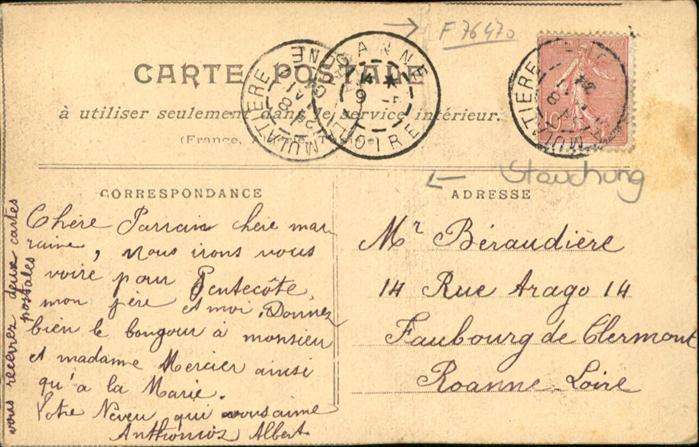 F 76470
CARTE POSTALE
à utiliser seulement dans le service intérieur.
(France,
ROANNE
LOIRE
MULATIERE
MULATIERE
Stauchung
CORRESPONDANCE
Chère Parrain chere mar
raine, nous irons vous
voire pour Pentecôte,
mon père et moi. Donnez
bien le bongour à monsieur
et madame Mercier ainsi
qu'a la Marie.
Votre Neveu qui vous aime
Anthionioz Albert
vous recevrez deux cartes
postales
ADRESSE
Mr Béraudière
14 Rue Arago 14
Faubourg de Clermont
Roanne-Loire